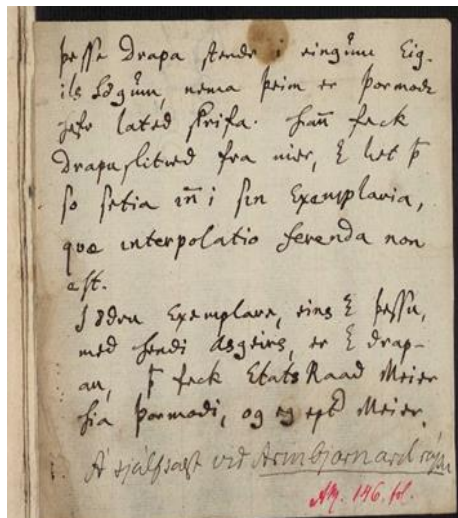 þesse Drapa stendr i eingum Eig-
ils Sögum, nema þeim er Þormodr
hefr latid skrifa. hann feck
Drapuslitred fra mier, & let þ
so setia inn i sin Exemplaria,
qvæ interpolatio ferenda non
est.
I ödru Exemplare, eins & þessu,
med hendi Asgeirs, er & drap-
an, þ feck Etats Raad Meier
hia Þormodi, og eg ept Meier.
Á sjálfsagt við Arinbjarnardrápu
AM. 146. fol.